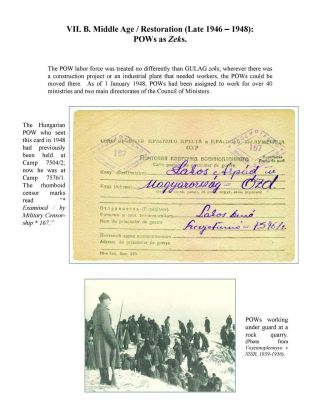 VII. B. Middle Age / Restoration (Late 1946 – 1948):
POWs as Zeks.
The POW labor force was treated no differently than GULAG zeks, wherever there was
a construction project or an industrial plant that needed workers, the POWs could be
moved there. As of 1 January 1948, POWs had been assigned to work for over 40
ministries and two main directorates of the Council of Ministers.
The Hungarian
POW who sent
this card in 1948
had previously
been held at
Camp 7504/2;
now he was at
Camp 7576/1.
The rhomboid
censor marks
read "*
Examined / by
Military Censor-
ship * 167."
167
167
ПОЧТОВАЯ КАРТОЧКА ВОЕННОПЛЕННОГО
Carte postale du prisonnier de guerre
Кому (Destinataire)
Куда (Adresse)
Magyarország – Ózd
Отправитель (Expéditeur)
POWs working
under guard at a
rock quarry.
(Photo from
Voyennoplennyye v
SSSR, 1939-1956).